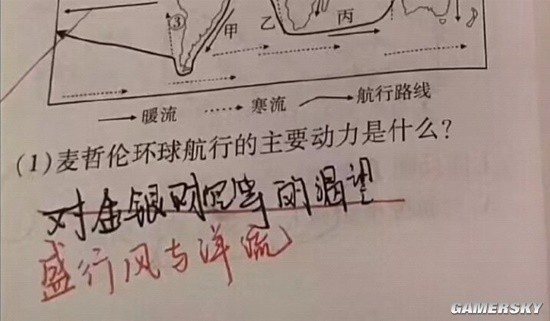 ③
甲 乙 丙
暖流 寒流 航行路线
(1)麦哲伦环球航行的主要动力是什么?
对金银财宝等的渴望
盛行风与洋流
GAMERSKY